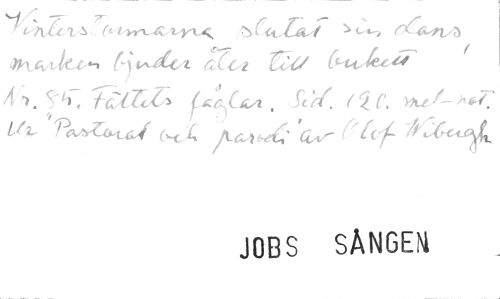 Vinterstormarna slutat sin dans,
marken bjuder åter till bukett
Nr. 85. Fältets fåglar. Sid. 120. mel-not.
Ur "Pastoral och parodi" av Olof Wibergh
JOBS SÅNGEN